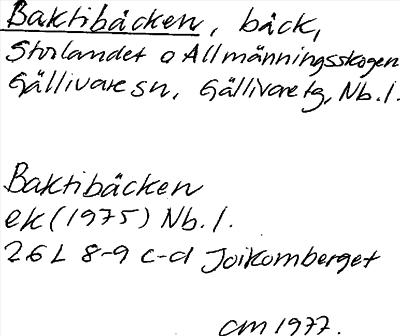 Baktibäcken, bäck,
Storlandet o Allmänningsskogen
Gällivare sn, Gällivare tg, Nb. l.
Baktibäcken
ek (1975) Nb. l.
26 L 8-9 c-d Joikomberget
cm 1977.